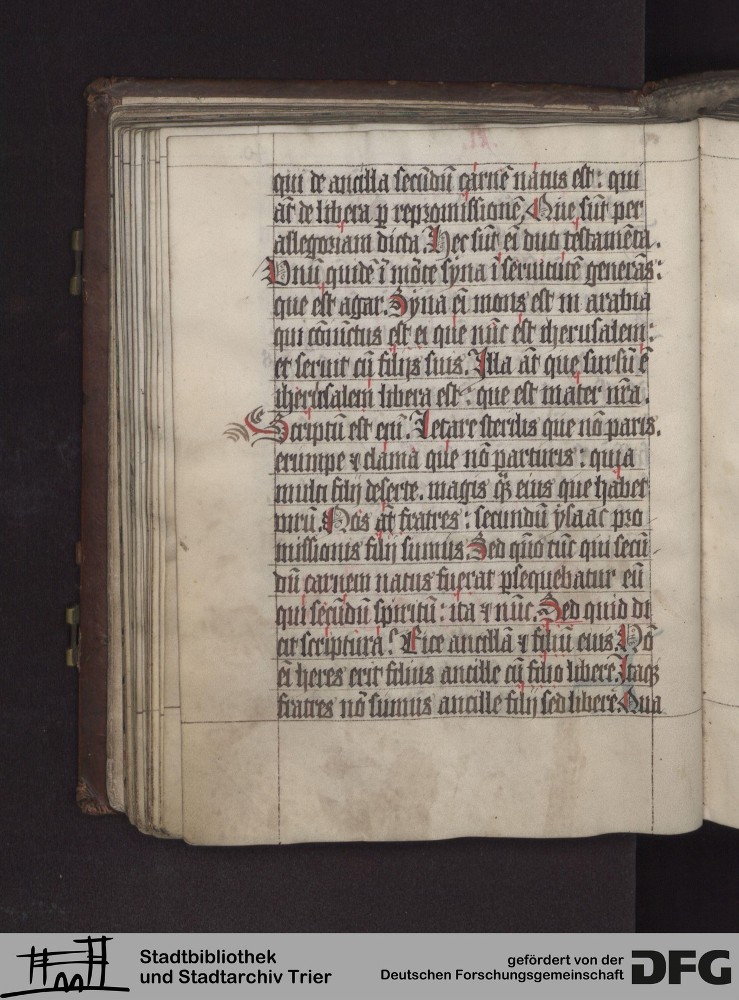 qui de ancilla secūdū carnē natus est: qui
aūt de libera ꝑ repromissionē. Que sūt per
allegoriam dicta. Hec sūt eī duo testamēta.
Vnū quidē ī mōte syna ī seruitutē generās:
que est agar. Syna eī mons est in arabia
qui cōiūctus est ei que nūc est iherusalem:
et seruit cū filijs suis. Illa āt que sursū ē
iherusalem libera est: que est mater nr̄a.
Scriptū est enī. Letare sterilis que nō paris.
erumpe ⁊ clama que nō parturis: quia
multi filij deserte. magis qͣ̄ eius que habet
virū. Nos āt fratres: secundū ysaac pro
missionis filij sumus. Sed quō tūc qui secū
dū carnem natus fuerat ꝑsequebatur eū
qui secūdū spiritū: ita ⁊ nūc. Sed quid di
cit scriptura? Eice ancillā ⁊ filiū eius. Nō
eī heres erit filius ancille cū filio libere. Itaqꝫ
fratres nō sumus ancille filij sed libere. Qua
Stadtbibliothek
und Stadtarchiv Trier
gefördert von der
Deutschen Forschungsgemeinschaft
DFG